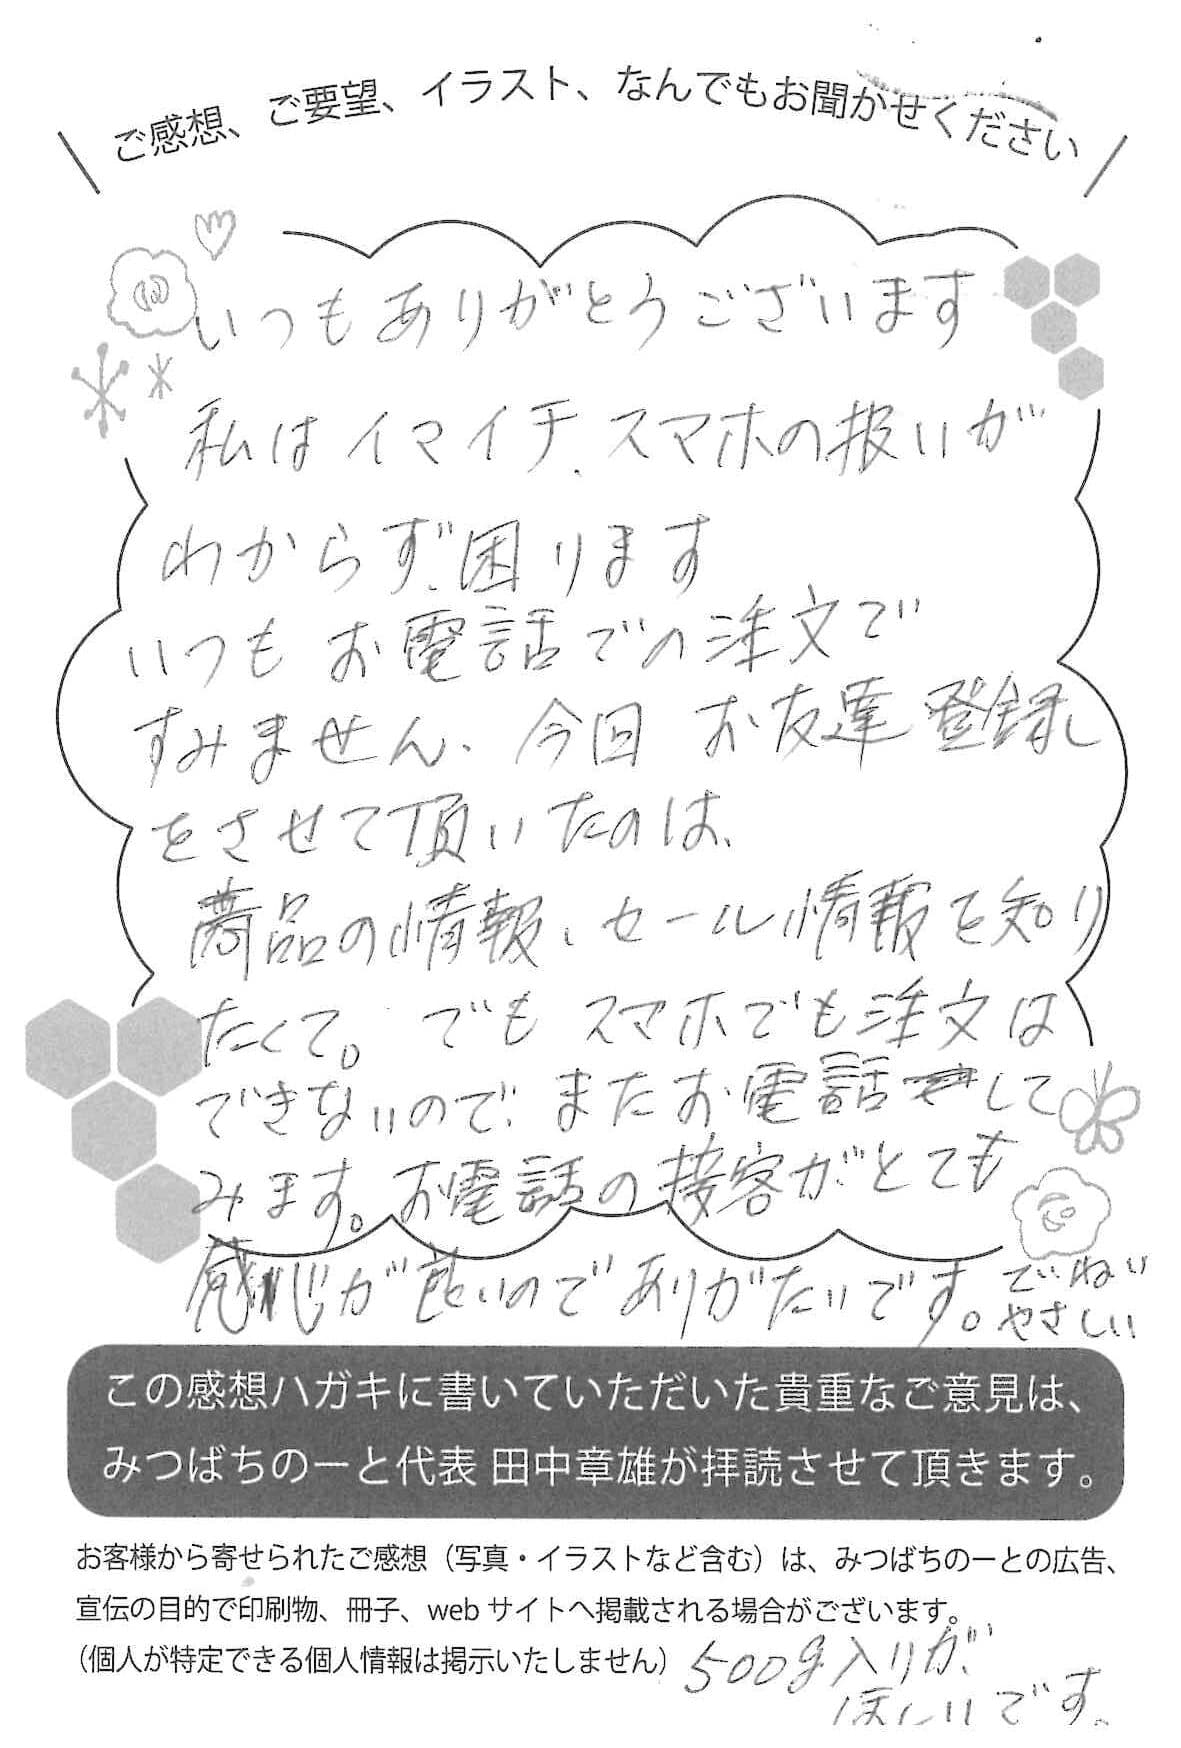 ご感想、ご要望、イラスト、なんでもお聞かせください
いつもありがとうございます
私は イマイチ、スマホの扱いが
わからず、困ります
いつも お電話での注文で
すみません、今回 お友達登録し
をさせて頂いたのは、
商品の情報、セール情報を知り
たくて。でも スマホでも注文は
できないので、またお電話して
みます。お電話の接客がとても
感じが良いのでありがたいです。
でいねい
やさしい
この感想ハガキに書いていただいた貴重なご意見は、
みつばちのーと代表 田中章雄が拝読させて頂きます。
お客様から寄せられたご感想（写真・イラストなど含む）は、みつばちのーとの広告、
宣伝の目的で印刷物、冊子、web サイトへ掲載される場合がございます。
（個人が特定できる個人情報は掲示いたしません）
500g入りが、
ほしいです。